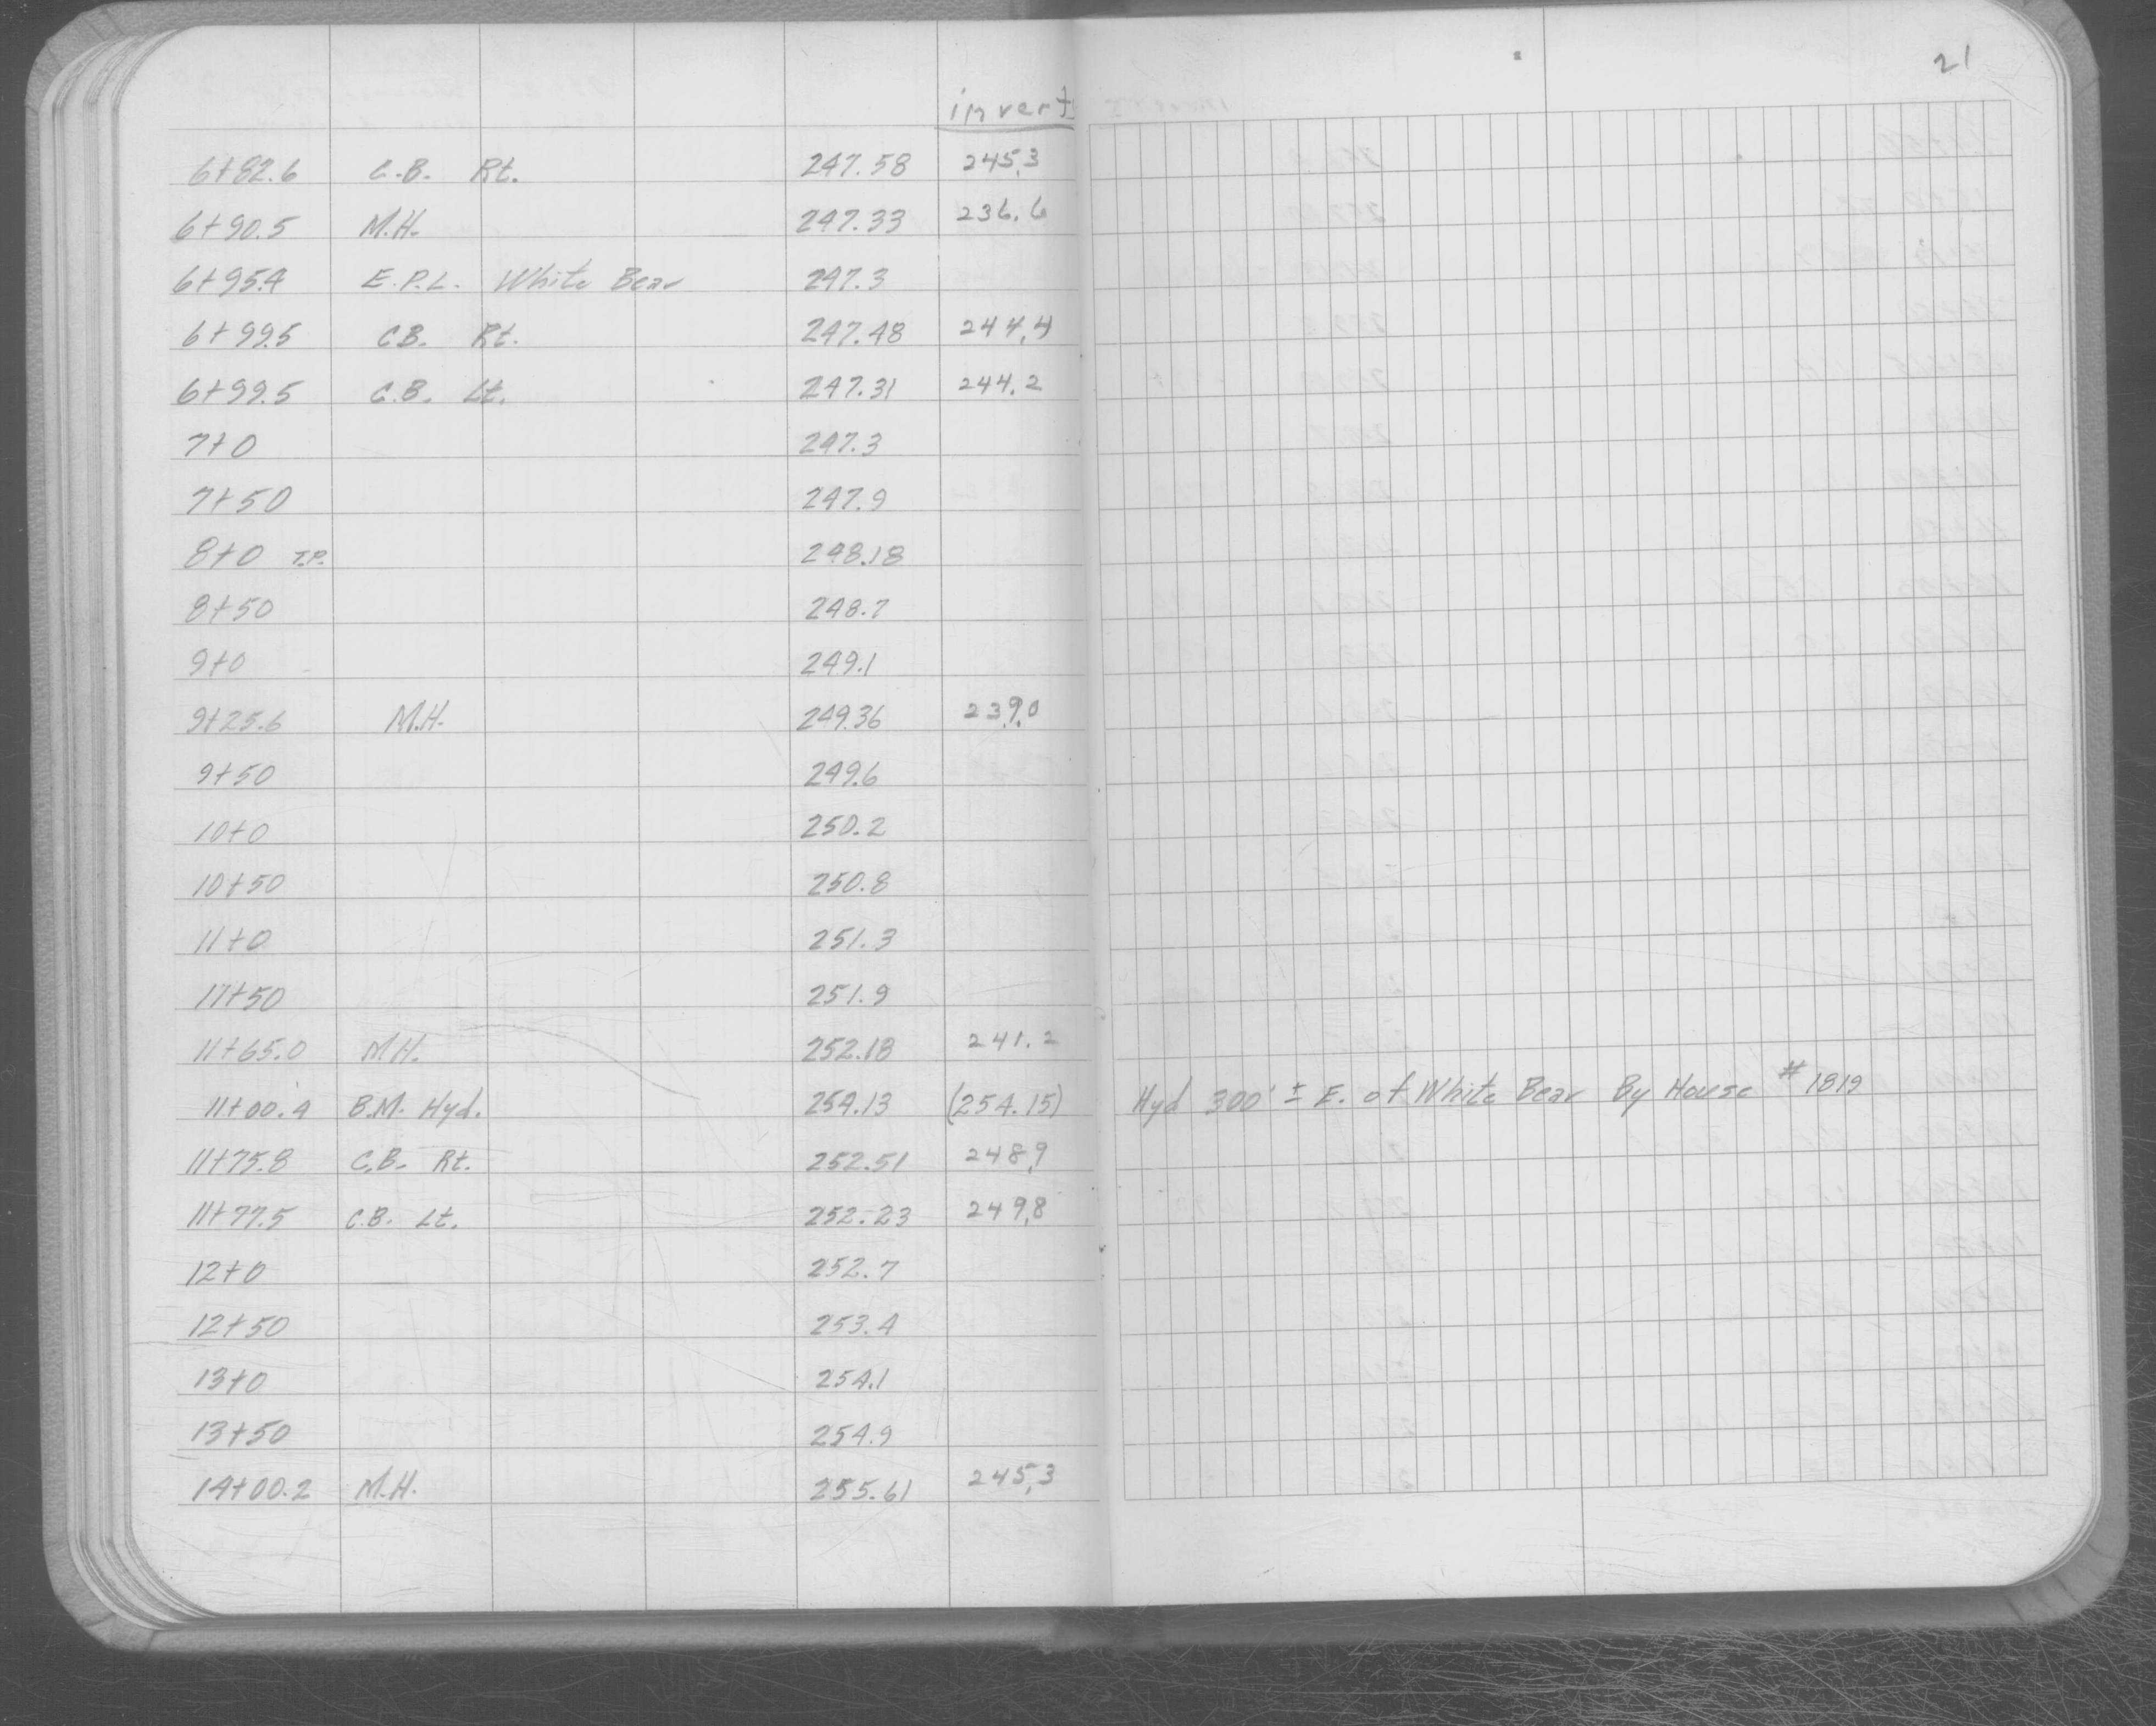 21
inverts
6+82.6 C.B. Rt. 247.58 245.3
6+90.5 M.H. 247.33 236.6
6+95.4 E.P.L. White Bear 247.3
6+99.5 C.B. Rt. 247.48 244.4
6+99.5 C.B. Lt. 247.31 244.2
7+0 247.3
7+50 247.9
8+0 T.P. 248.18
8+50 248.7
9+0 249.1
9+25.6 M.H. 249.36 239.0
9+50 249.6
10+0 250.2
10+50 250.8
11+0 251.3
11+50 251.9
11+65.0 M.H. 252.18 241.2
11+00.4 B.M. Hyd. 254.13 (254.15) Hyd 300' ± E. of White Bear By House #1819
11+75.8 C.B. Rt. 252.51 248.9
11+77.5 C.B. Lt. 252.23 249.8
12+0 252.7
12+50 253.4
13+0 254.1
13+50 254.9
14+00.2 M.H. 255.61 245.3